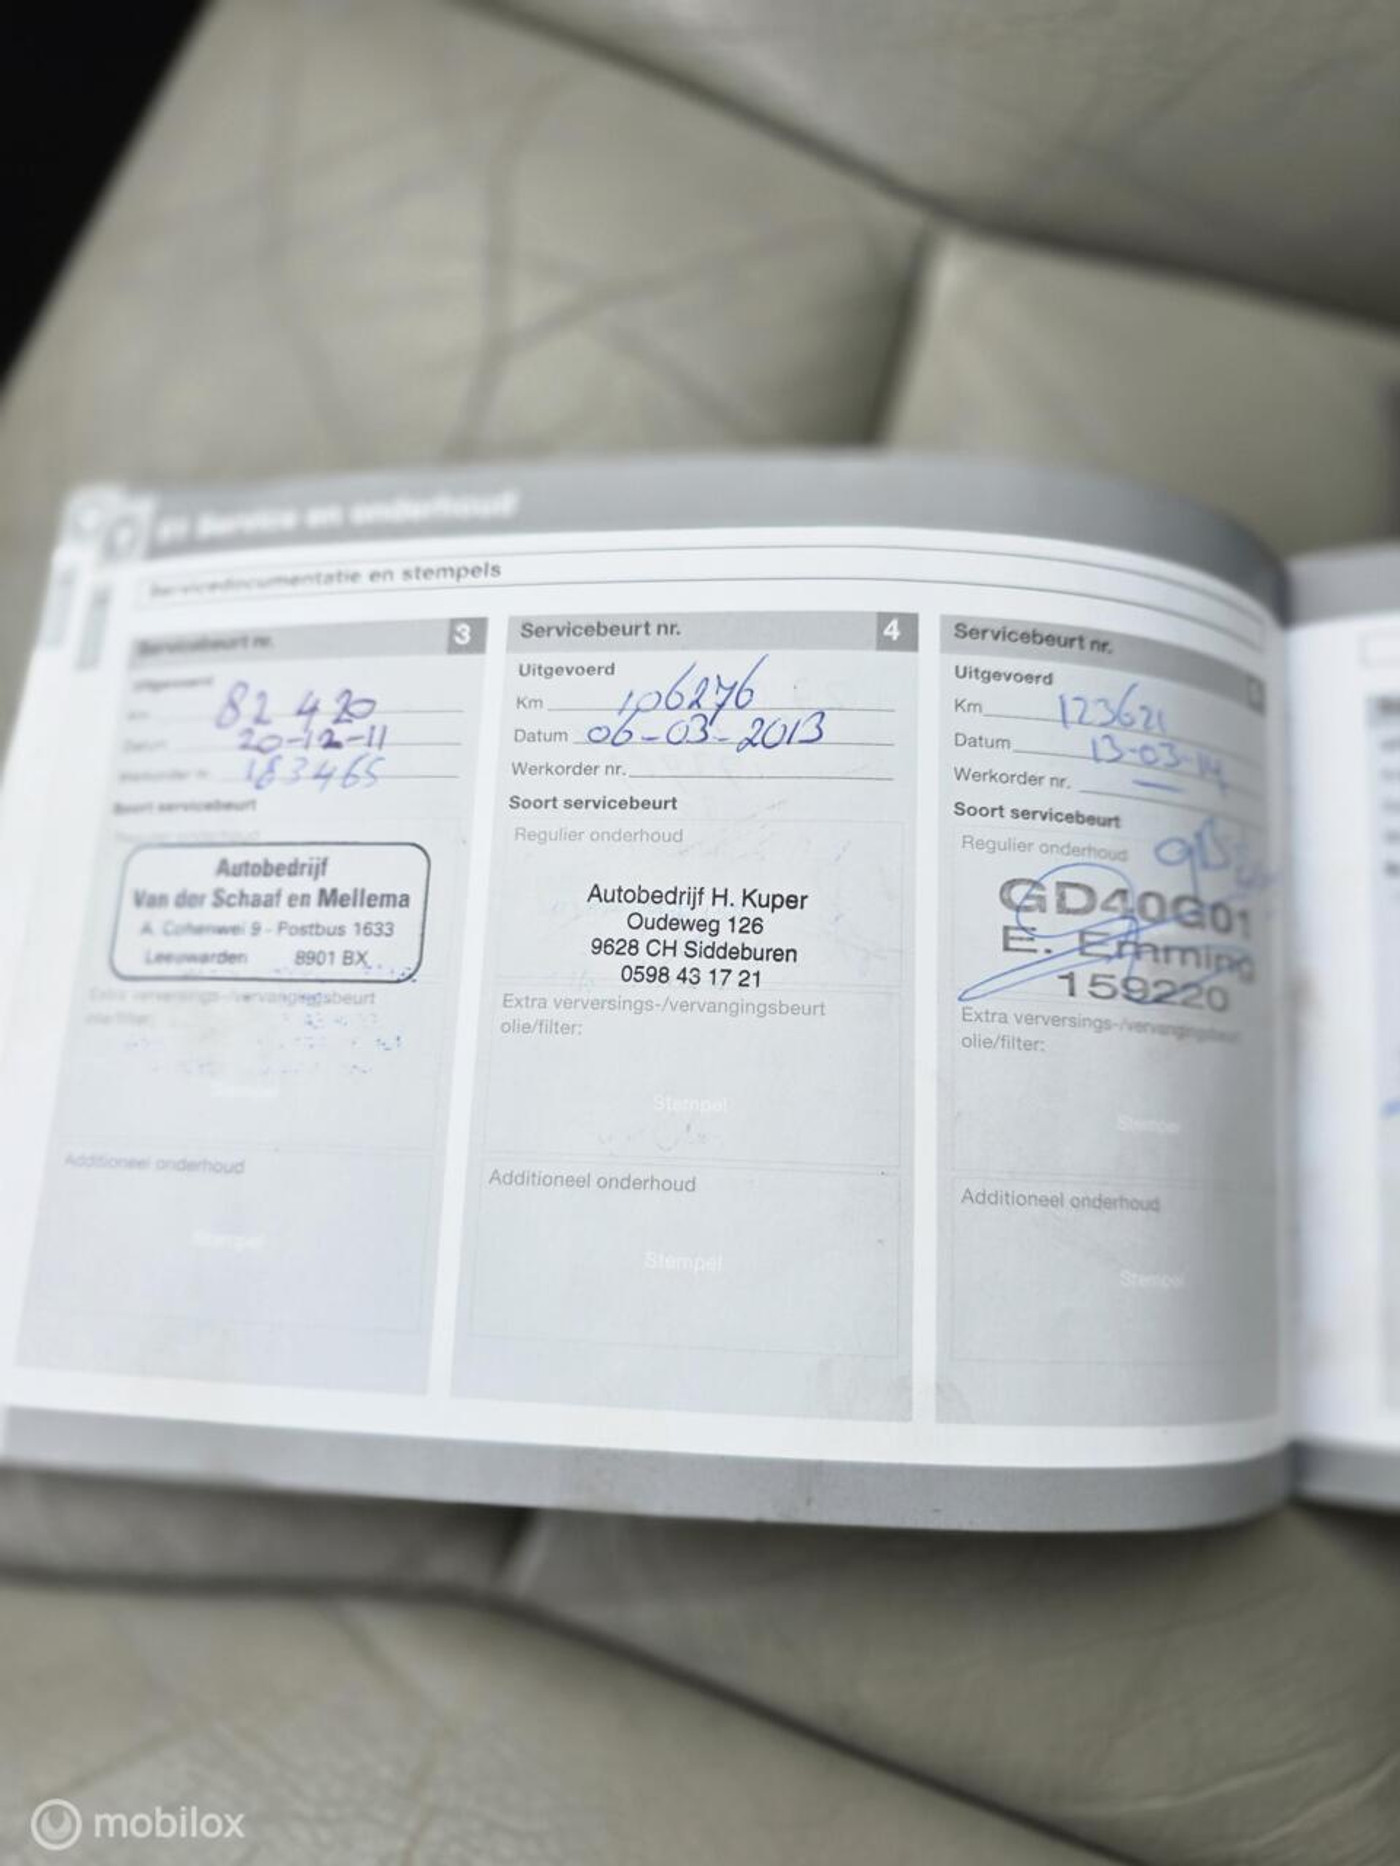 Service en onderhoud
Servicedocumentatie en stempels
Servicebeurt nr. 3
Uitgevoerd
Km 82 420
Datum 20-12-11
Werkorder nr. 183465
Soort servicebeurt
Regulier onderhoud
Autobedrijf
Van der Schaaf en Mellema
A. Cohenwei 9 - Postbus 1633
Leeuwarden 8901 BX
Extra verversings-/vervangingsbeurt
olie/filter:
Stempel
Additioneel onderhoud
Stempel
Servicebeurt nr. 4
Uitgevoerd
Km 106276
Datum 06-03-2013
Werkorder nr.
Soort servicebeurt
Regulier onderhoud
Autobedrijf H. Kuper
Oudeweg 126
9628 CH Siddeburen
0598 43 17 21
Extra verversings-/vervangingsbeurt
olie/filter:
Stempel
Additioneel onderhoud
Stempel
Servicebeurt nr.
Uitgevoerd
Km 123621
Datum 13-03-14
Werkorder nr. —
Soort servicebeurt
Regulier onderhoud
GD40G01
E. Emming
159220
Extra verversings-/vervangingsbeurt
olie/filter:
Stempel
Additioneel onderhoud
Stempel
mobilox